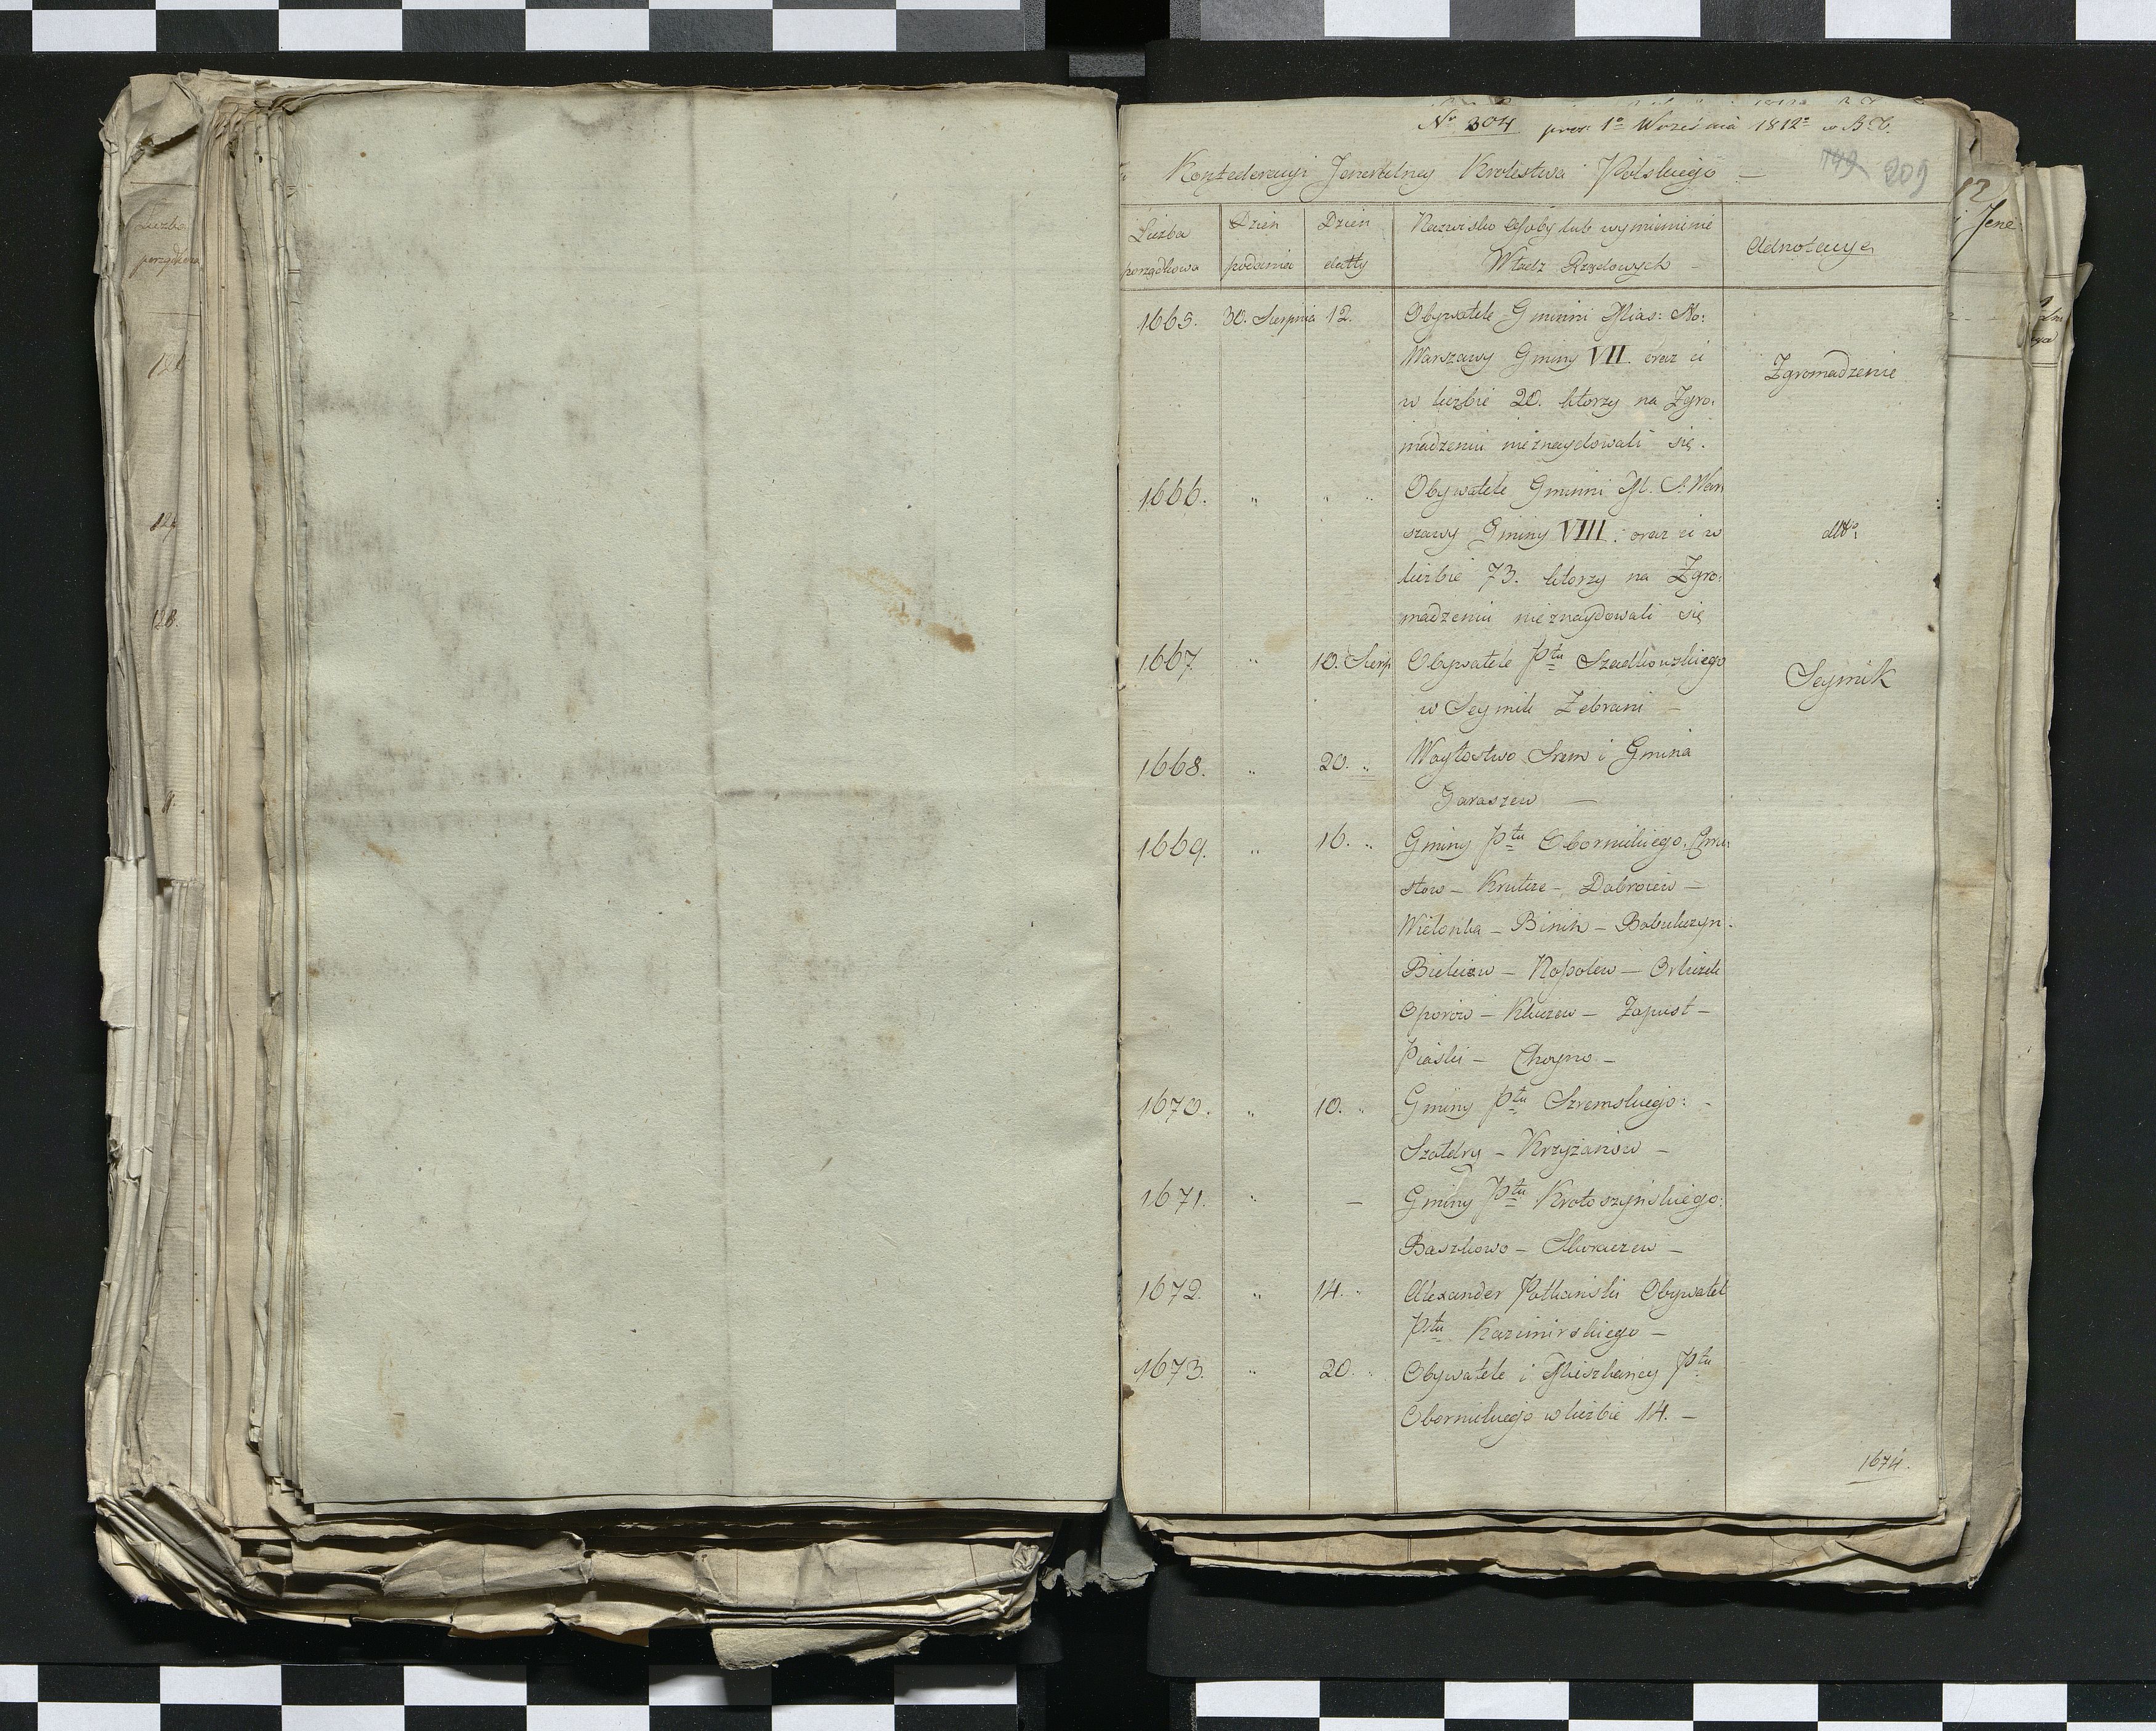 Liczba
porządkowa
128.
No 304 prez: 1o Września 1812o w B. C.
Konfederacyi Jeneralney Krolestwa Polskiego —
749 209
Liczba porządkowa
Dzień podania
Dzień datty
Nazwisko Osoby lub wymienienie Władz Rządowych —
Adnotacye
1665. 30. Sierpnia 12. Obywatele Gminni Mias: Sto:
Warszawy Gminy VII. oraz ci
Zgromadzenie
w liczbie 20. ktorzy na Zgro:
madzeniu nieznaydowali się.
1666. „ „ „ Obywatele Gminni M. S. War
szawy Gminy VIII. oraz ci w
dtto:
liczbie 73. ktorzy na Zgro:
madzeniu nieznaydowali się
1667. „ 10. Sierp Obywatele Ptu Szadkowskiego
Seymik
w Seymik Zebrani —
1668. „ 20. „ Woytostwo Srem i Gmina
Garaszew —
1669. „ 16. „ Gminy Ptu Obornickiego.
stow — Krucze — Dobrocew —
Wielonka — Binin — Bobulczyn.
— Napolew —
Oporow — Kluczew — Zapust —
Piaski — Choyno —
1670. „ 10. „ Gminy Ptu Szremskiego: —
Szołdry — Krzyżanow —
1671. „ — Gminy Ptu Krotoszyńskiego:
Baszkowo — —
1672. „ 14. „ Alexander Potkański Obywatel
Ptu Kazimirskiego —
1673. „ 20. „ Obywatele i Mieszkańcy Ptu
Obornickiego w liczbie 14. —
1674.